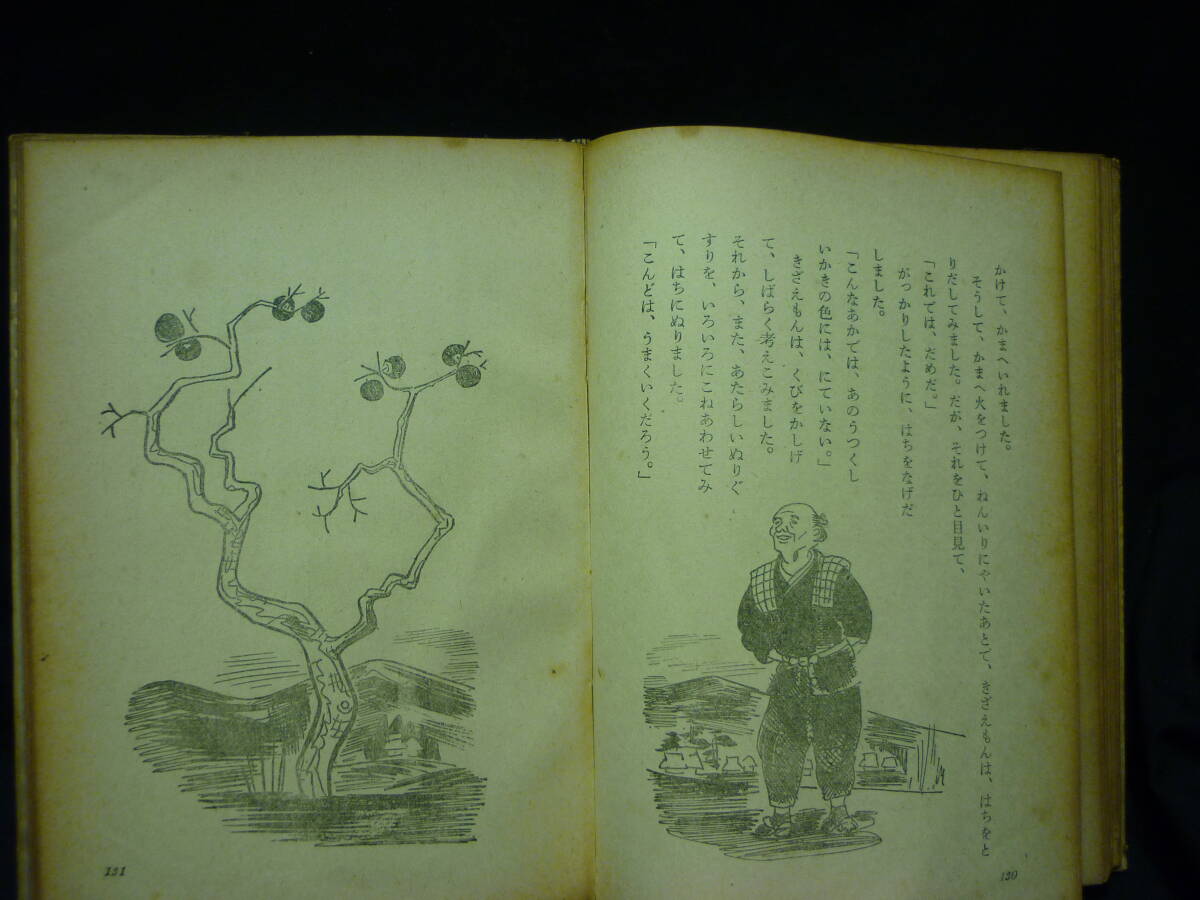 かけて、かまへいれました。
そうして、かまへ火をつけて、ねんいりにやいたあとで、きざえもんは、はちをと
りだしてみました。だが、それをひと目見て、
「これでは、だめだ。」
がっかりしたように、はちをなげだ
しました。
「こんなあかでは、あのうつくし
いかきの色には、にていない。」
きざえもんは、くびをかしげ
て、しばらく考えこみました。
それから、また、あたらしいぬりぐ
すりを、いろいろにこねあわせてみ
て、はちにぬりました。
「こんどは、うまくいくだろう。」
130
131